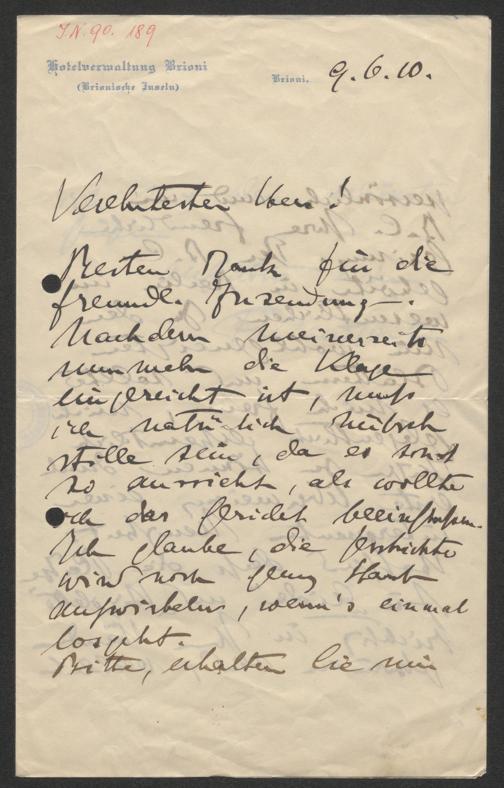 J.N. 90. 189
Hotelverwaltung Brioni
(Brionische Inseln)
Brioni, 9.6.10.
Verehrtester Herr!
Besten Dank für die
freundl. Zusendung.
Nachdem meinerseits
nunmehr die Klage
eingereicht ist, muß
ich natürlich hübsch
stille sein, da es sonst
so aussieht, als wollte
ich das Gericht beeinflussen.
Ich glaube, die Geschichte
wird noch genug Staub
aufwirbeln, wenn's einmal
losgeht.
Bitte, erhalten Sie mir